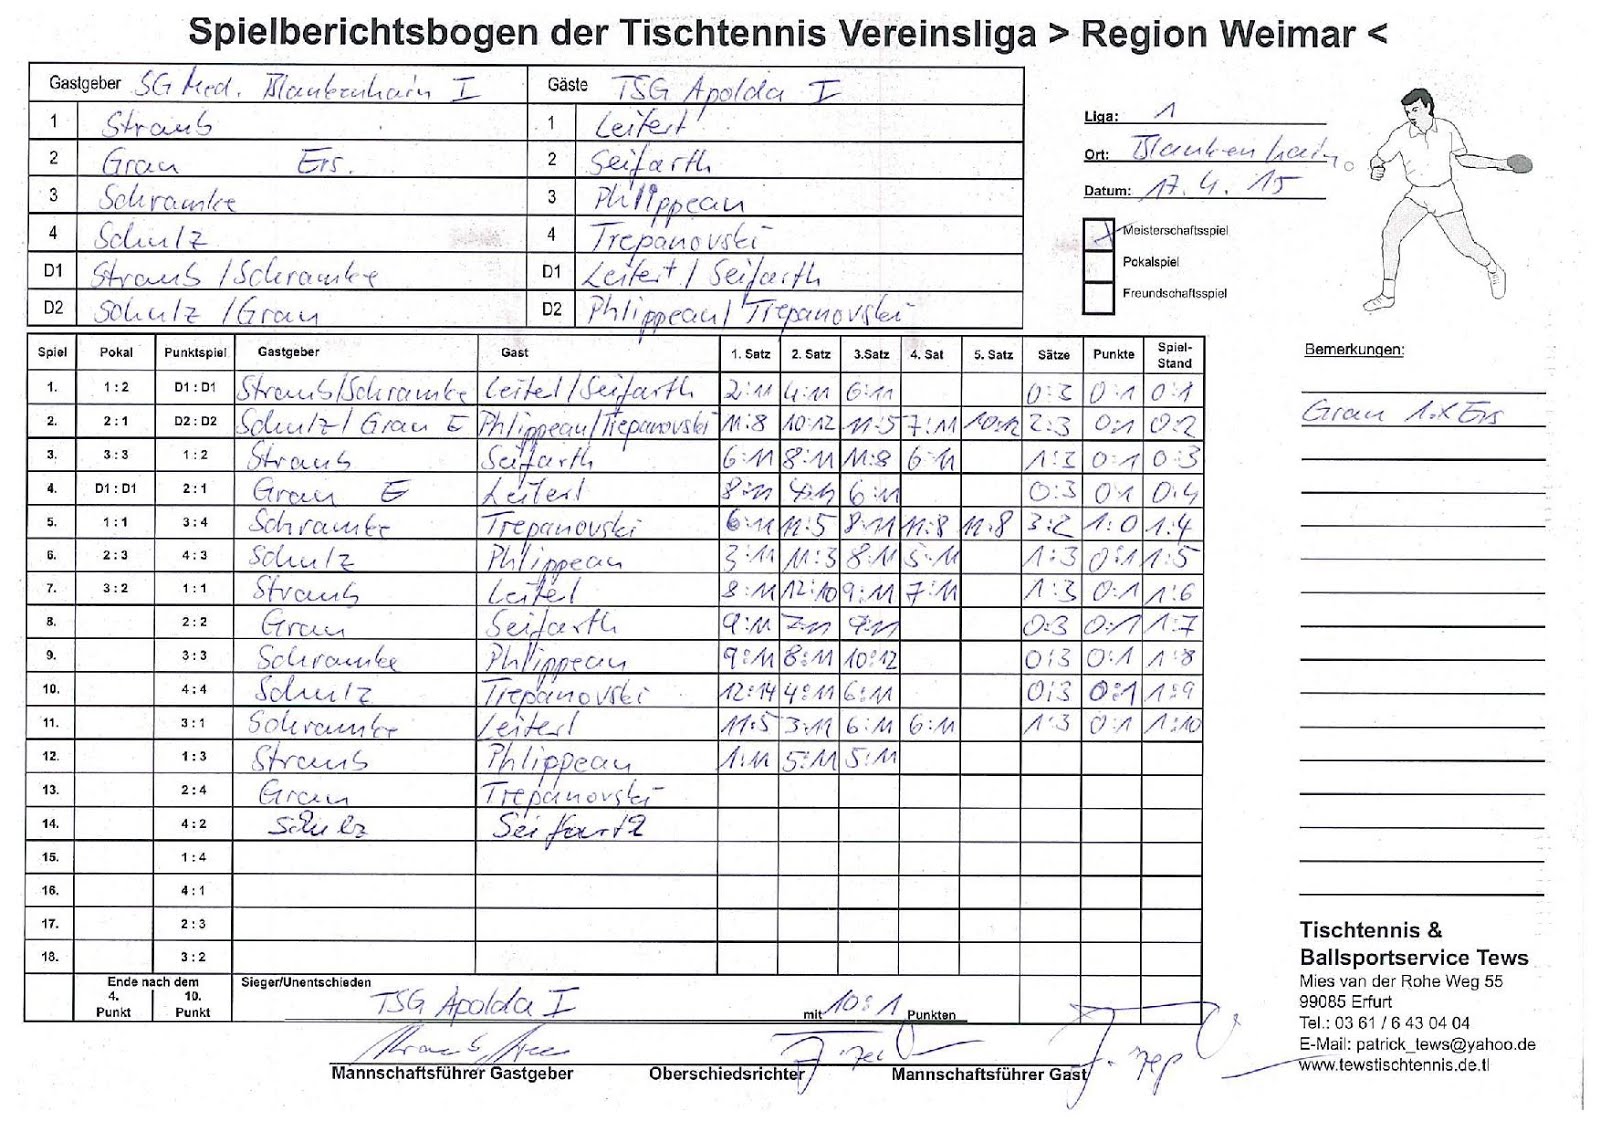 Spielberichtsbogen der Tischtennis Vereinsliga > Region Weimar <
Gastgeber SG Med. Blankenhain I Gäste TSG Apolda I
1 Straub 1 Leitert
2 Grau Ers. 2 Seifarth
3 Schramke 3 Philippeau
4 Schulz 4 Trepanovski
D1 Straub / Schramke D1 Leitert / Seifarth
D2 Schulz / Grau D2 Phlippeau / Trepanovski
Liga: 1
Ort: Blankenhain
Datum: 17.4.15
x Meisterschaftsspiel
Pokalspiel
Freundschaftsspiel
Spiel Pokal Punktspiel Gastgeber Gast 1. Satz 2. Satz 3.Satz 4. Sat 5. Satz Sätze Punkte Spiel-Stand
1. 1 : 2 D1 : D1 Straub/Schramke Leitert/Seifarth 2:11 4:11 6:11 0:3 0:1 0:1
2. 2 : 1 D2 : D2 Schulz / Grau E Phlippeau/Trepanovski 11:8 10:12 11:5 7:11 10:12 2:3 0:1 0:2
3. 3 : 3 1 : 2 Straub Seifarth 6:11 8:11 11:8 6:11 1:3 0:1 0:3
4. D1 : D1 2 : 1 Grau E Leitert 8:11 4:11 6:11 0:3 0:1 0:4
5. 1 : 1 3 : 4 Schramke Trepanovski 6:11 11:5 8:11 11:8 11:8 3:2 1:0 1:4
6. 2 : 3 4 : 3 Schulz Phlippeau 3:11 11:3 8:11 5:11 1:3 0:1 1:5
7. 3 : 2 1 : 1 Straub Leitert 8:11 12:10 9:11 7:11 1:3 0:1 1:6
8. 2 : 2 Grau Seifarth 9:11 7:11 9:11 0:3 0:1 1:7
9. 3 : 3 Schramke Phlippeau 9:11 8:11 10:12 0:3 0:1 1:8
10. 4 : 4 Schulz Trepanovski 12:14 4:11 6:11 0:3 0:1 1:9
11. 3 : 1 Schramke Leitert 11:5 3:11 6:11 6:11 1:3 0:1 1:10
12. 1 : 3 Straub Phlippeau 1:11 5:11 5:11
13. 2 : 4 Grau Trepanovski
14. 4 : 2 Schulz Seifarth
15. 1 : 4
16. 4 : 1
17. 2 : 3
18. 3 : 2
Ende nach dem
4. Punkt 10. Punkt
Sieger/Unentschieden
TSG Apolda I mit 10:1 Punkten
Mannschaftsführer Gastgeber Oberschiedsrichter Mannschaftsführer Gast
Bemerkungen:
Grau 1.x Ers
Tischtennis &
Ballsportservice Tews
Mies van der Rohe Weg 55
99085 Erfurt
Tel.: 03 61 / 6 43 04 04
E-Mail: patrick_tews@yahoo.de
www.tewstischtennis.de.tl